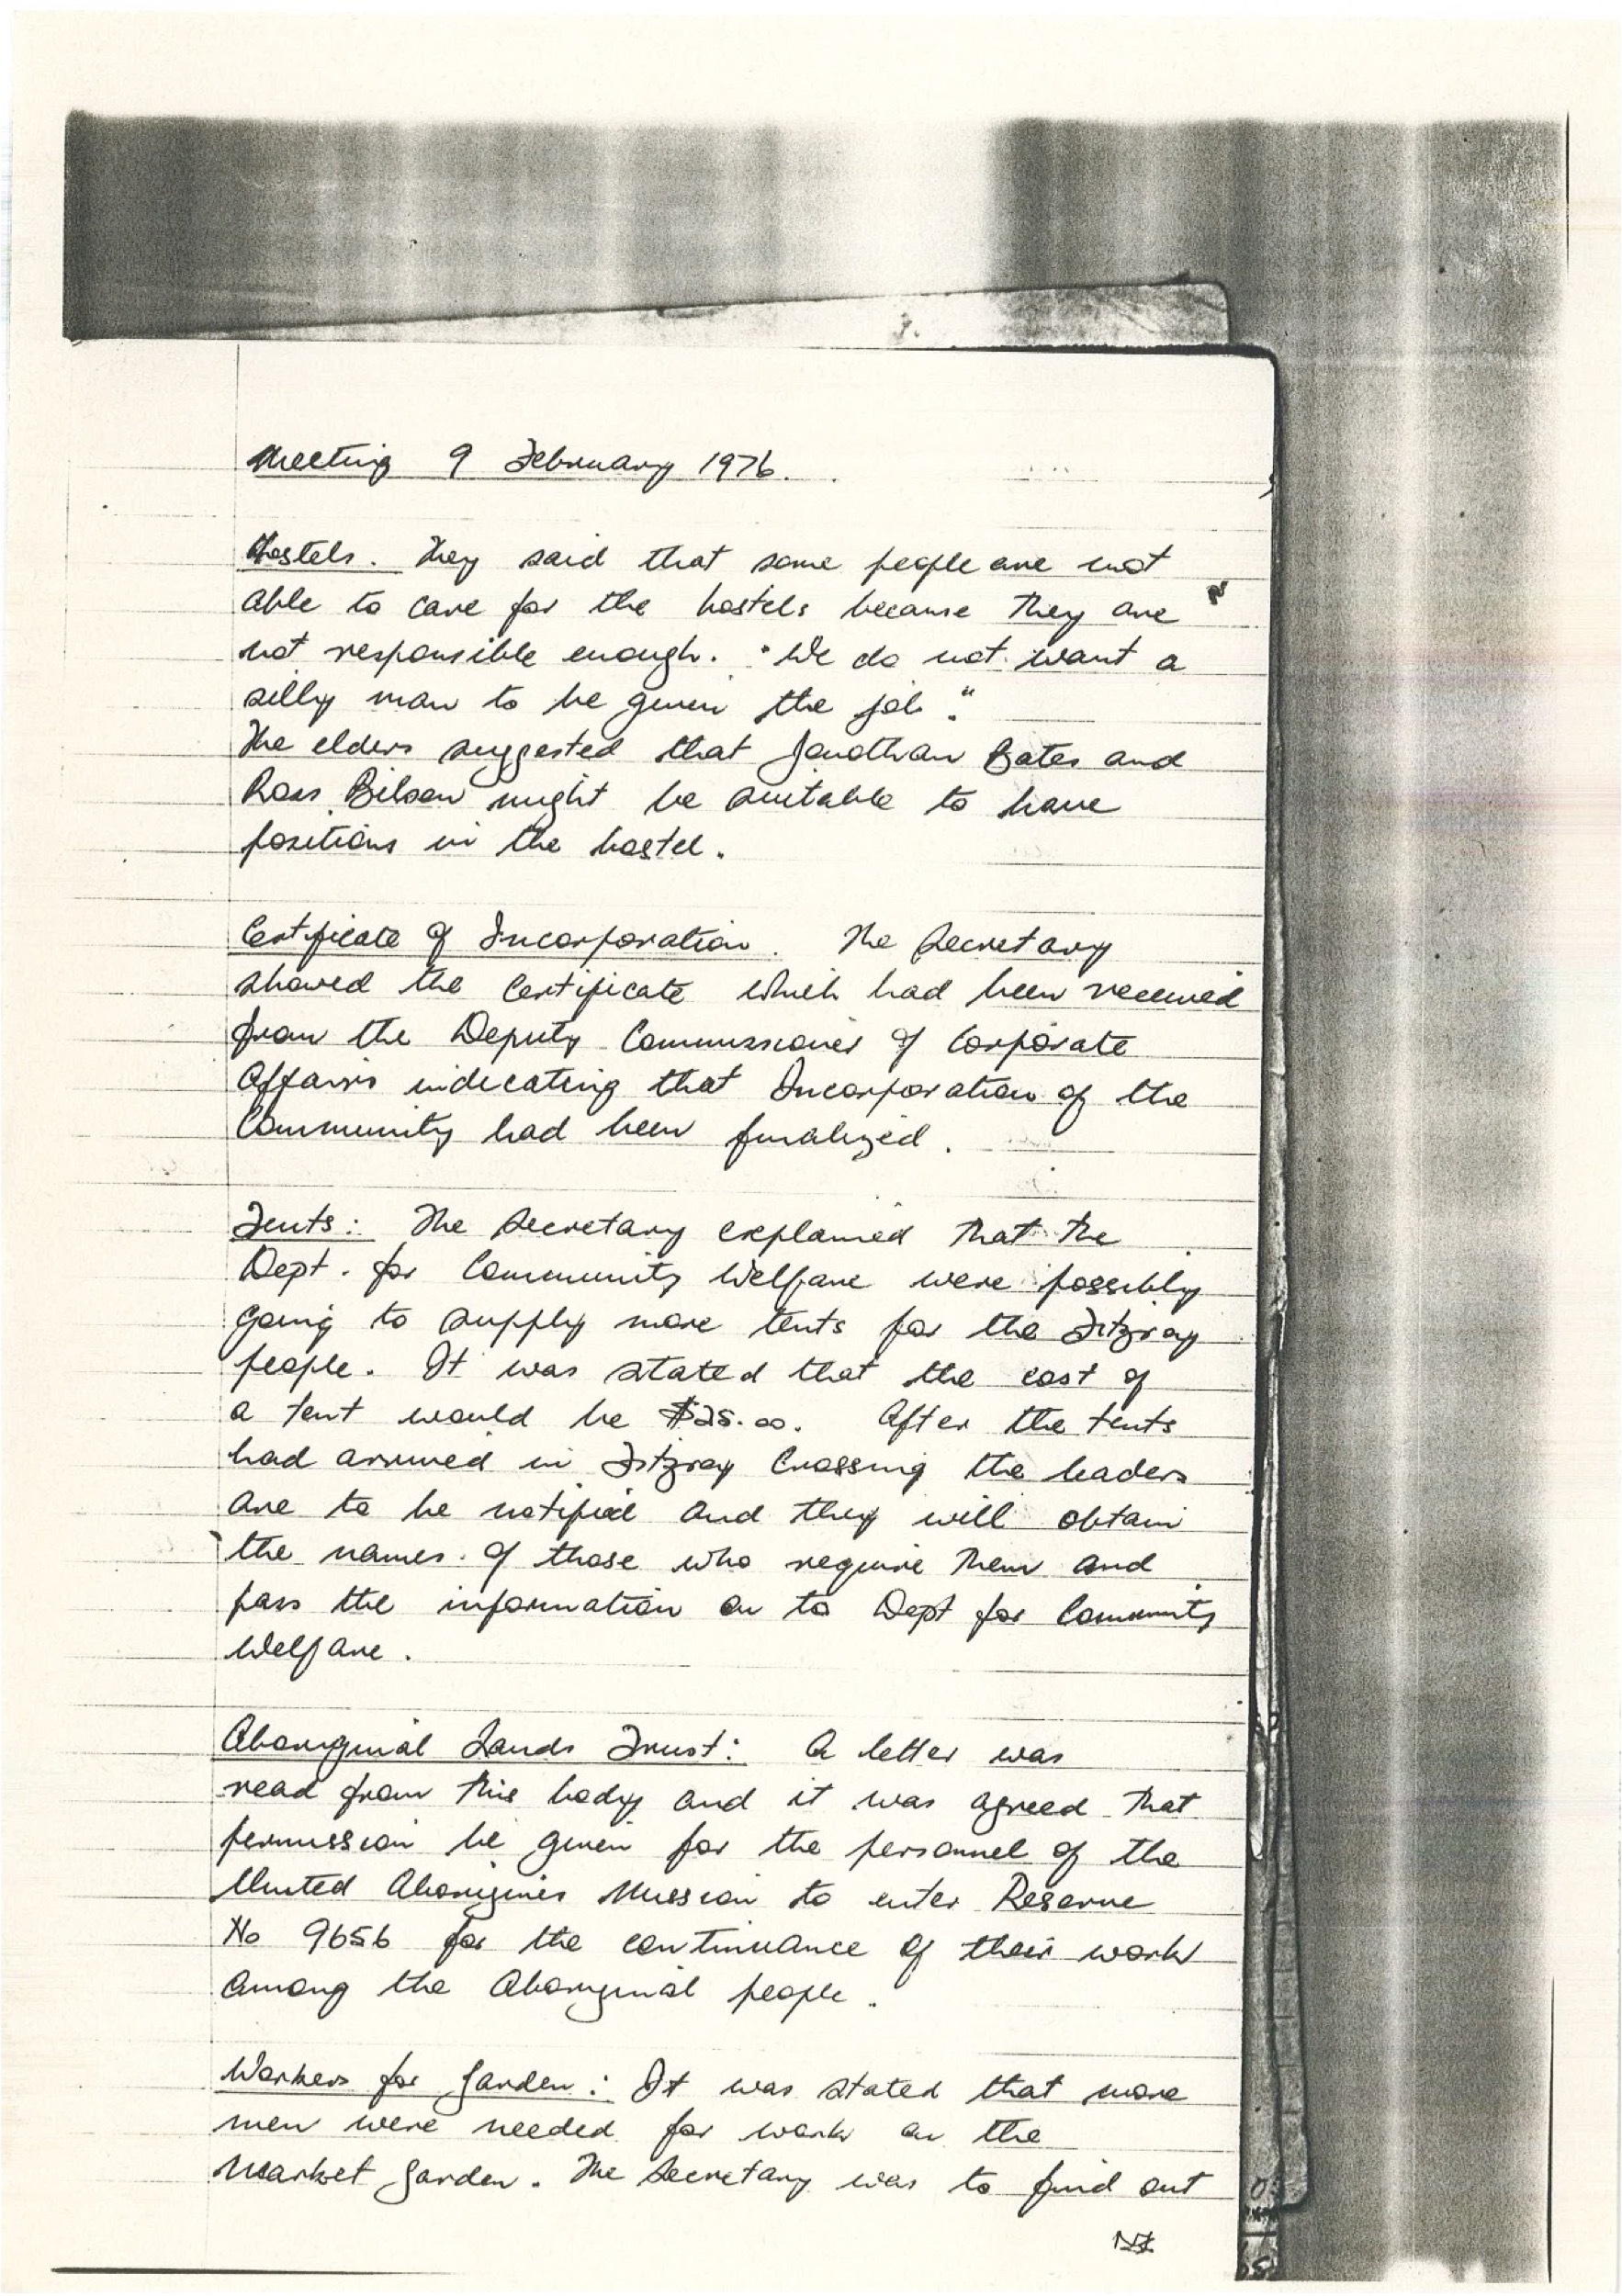 Meeting 9 February 1976.
Hostels. They said that some people are not
able to care for the hostels because they are
not responsible enough. "We do not want a
silly man to be given the job."
The elders suggested that Jonathan Bates and
Ross Bilson might be suitable to have
positions in the hostel.
Certificate of Incorporation. The Secretary
showed the Certificate which had been received
from the Deputy Commissioner of Corporate
Affairs indicating that Incorporation of the
Community had been finalized.
Tents: The Secretary explained that the
Dept. for Community Welfare were possibly
going to supply more tents for the Fitzroy
people. It was stated that the cost of
a tent would be $25.00. After the tents
had arrived in Fitzroy Crossing the leaders
are to be notified and they will obtain
the names of those who require them and
pass the information on to Dept for Community
Welfare.
Aboriginal Lands Trust: A letter was
read from this body and it was agreed that
permission be given for the personnel of the
United Aborigines Mission to enter Reserve
No 9656 for the continuance of their work
among the Aboriginal people.
Workers for Garden: It was stated that more
men were needed for work on the
Market Garden. The Secretary was to find out